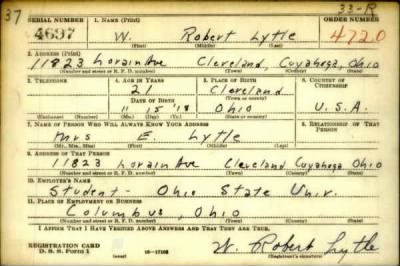 37 33-R
SERIAL NUMBER 1. NAME (Print) ORDER NUMBER
4697 W. Robert Lytle 4720
(First) (Middle) (Last)
2. ADDRESS (Print)
11823 Lorain Ave Cleveland, Cuyahoga, Ohio
(Number and street or R. F. D. number) (Town) (County) (State)
3. TELEPHONE 4. AGE IN YEARS 5. PLACE OF BIRTH 6. COUNTRY OF CITIZENSHIP
21 Cleveland
DATE OF BIRTH (Town or county)
11 15 '18 Ohio U.S.A.
(Exchange) (Number) (Mo.) (Day) (Yr.) (State or country)
7. NAME OF PERSON WHO WILL ALWAYS KNOW YOUR ADDRESS 8. RELATIONSHIP OF THAT PERSON
Mrs E. Lytle
(Mr., Mrs., Miss) (First) (Middle) (Last)
9. ADDRESS OF THAT PERSON
11823 Lorain Ave Cleveland Cuyahoga Ohio
(Number and street or R. F. D. number) (Town) (County) (State)
10. EMPLOYER'S NAME
Student - Ohio State Univ.
11. PLACE OF EMPLOYMENT OR BUSINESS
Columbus, Ohio
(Number and street or R. F. D. number) (Town) (County) (State)
I AFFIRM THAT I HAVE VERIFIED ABOVE ANSWERS AND THAT THEY ARE TRUE.
REGISTRATION CARD W. Robert Lytle
D. S. S. Form 1 (Registrant's signature)